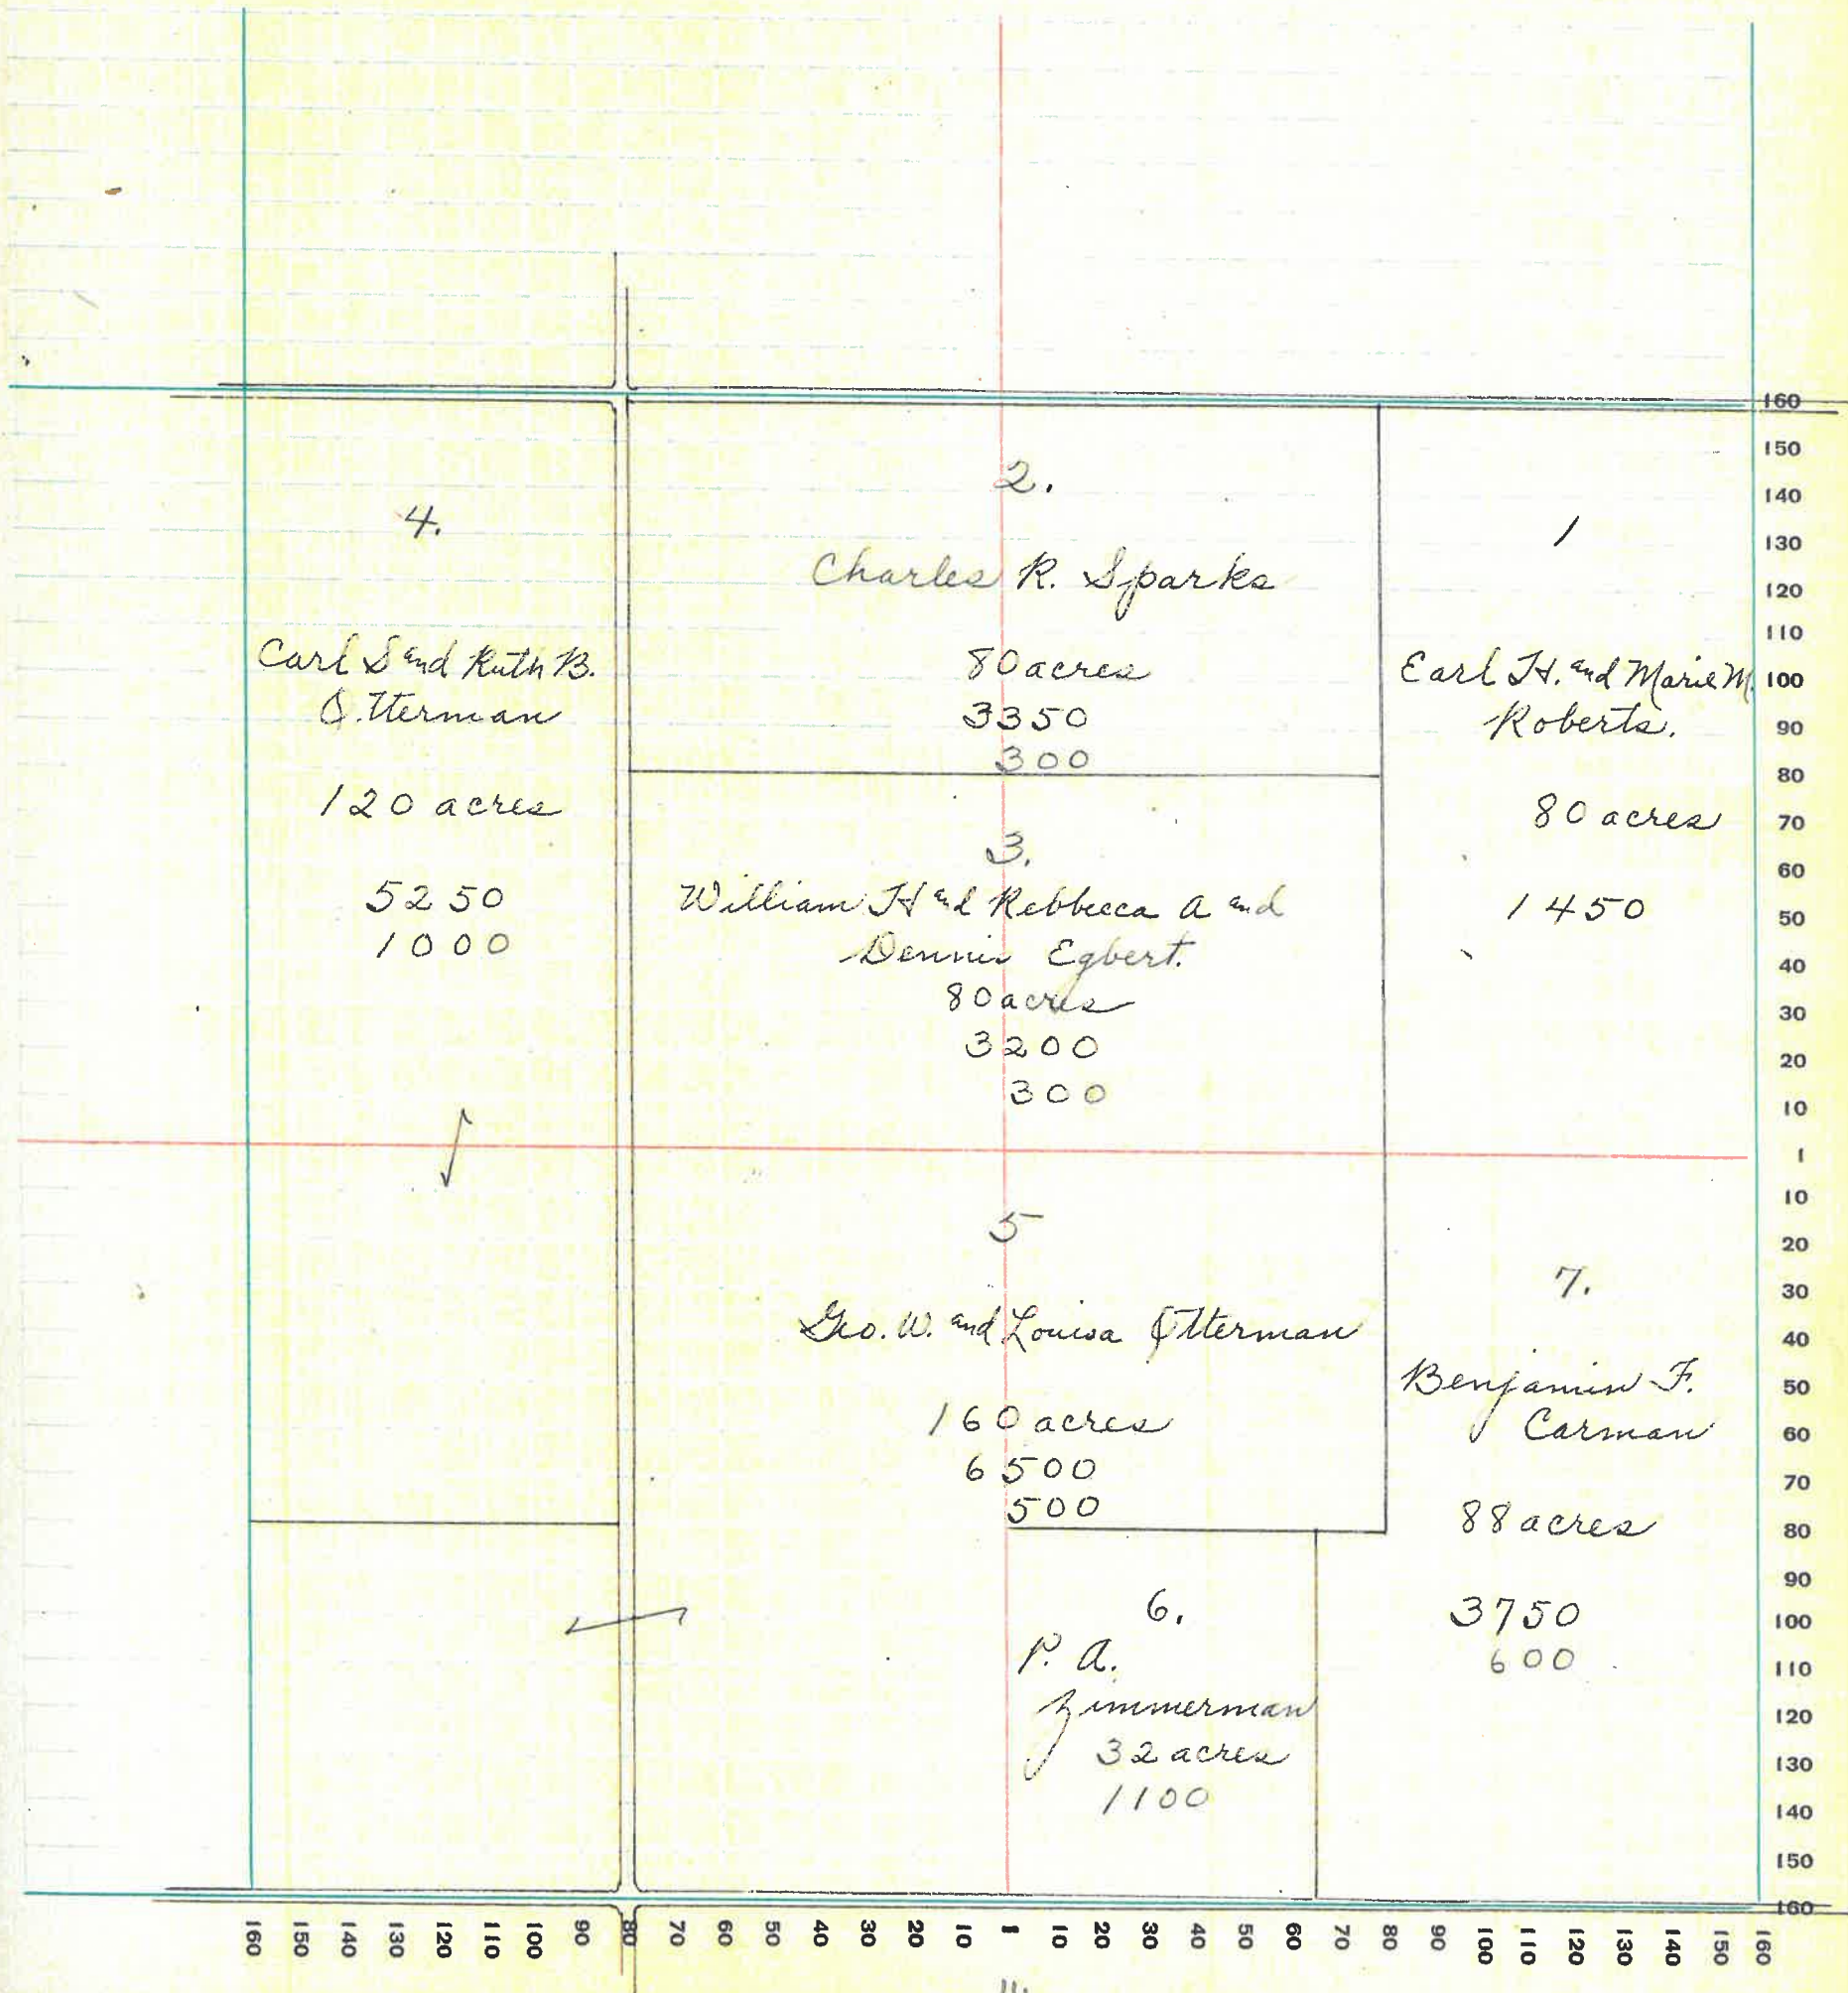 1
Earl H. and Marie M.
Roberts.
80 acres
1450
2.
Charles R. Sparks
80 acres
3350
300
3.
William H and Rebbecca A and
Dennis Egbert.
80 acres
3200
300
4.
Carl S and Ruth B.
Otterman
120 acres
5250
1000
5
Geo. W. and Louisa Otterman
160 acres
6500
500
6.
P. A.
Zimmerman
32 acres
1100
7.
Benjamin F.
Carman
88 acres
3750
600
160
150
140
130
120
110
100
90
80
70
60
50
40
30
20
10
1
10
20
30
40
50
60
70
80
90
100
110
120
130
140
150
160
160 150 140 130 120 110 100 90 80 70 60 50 40 30 20 10 1 10 20 30 40 50 60 70 80 90 100 110 120 130 140 150 160